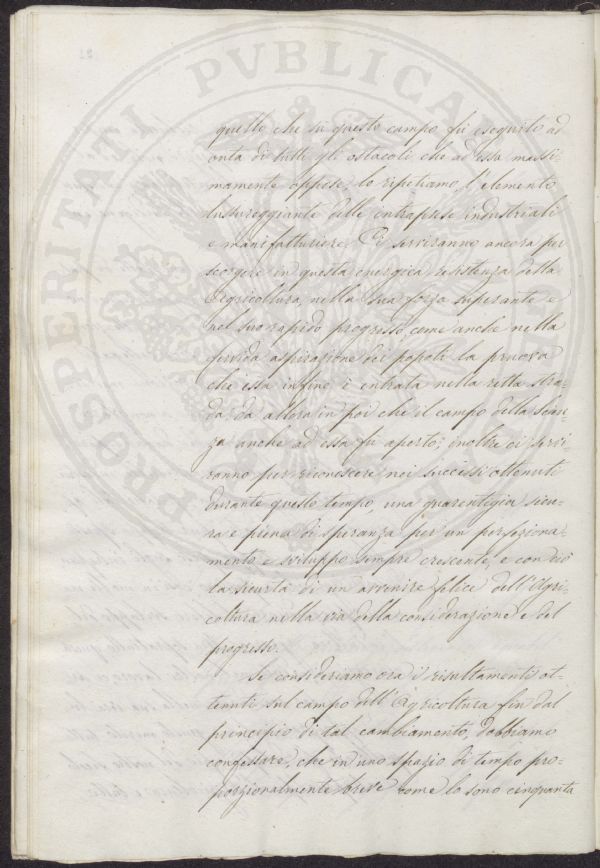 PROSPERITATI PVBLICAE
quello che su questo campo fù eseguito ad
onta di tutti gli ostacoli che ad essa massi-
mamente oppose, lo ripetiamo, l'elemento
lussureggiante delle intraprese industriali
e manifatturiere. Ci serviranno ancora per
scorgere in questa energica resistenza della
Agricoltura, nella sua forza superante e
nel suo rapido progresso, come anche nella
fervida aspirazione dei popoli la pruova
che essa infine è entrata nella retta stra-
da da allora in poi che il campo della Scien-
za anche ad essa fù aperto; inoltre ci servi-
ranno per riconoscere nei successi ottenuti
durante questo tempo, una guarentigia sicu-
ra e piena di speranza per un perfeziona-
mento e sviluppo sempre crescente, e con ciò
la sicurtà di un avvenire felice dell'Agri-
coltura nella via della considerazione e del
progresso.
Se consideriamo ora i risultamenti ot-
tenuti sul campo dell'Agricoltura fin dal
principio di tal cambiamento, dobbiamo
confessare, che in uno spazio di tempo pro-
porzionalmente breve come lo sono cinquanta